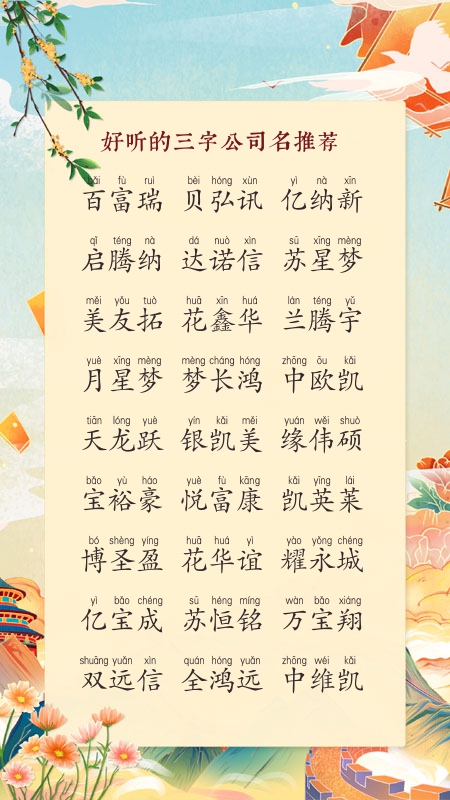 好听的三字公司名推荐
bǎi fù ruì bèi hóng xùn yì nà xīn
百富瑞 贝弘讯 亿纳新
qǐ téng nà dá nuò xìn sū xīng mèng
启腾纳 达诺信 苏星梦
měi yǒu tuò huā xīn huá lán téng yǔ
美友拓 花鑫华 兰腾宇
yuè xīng mèng mèng cháng hóng zhōng ōu kǎi
月星梦 梦长鸿 中欧凯
tiān lóng yuè yín kǎi měi yuán wěi shuò
天龙跃 银凯美 缘伟硕
bǎo yù háo yuè fù kāng kǎi yīng lái
宝裕豪 悦富康 凯英莱
bó shèng yíng huā huá yì yào yǒng chéng
博圣盈 花华谊 耀永城
yì bǎo chéng sū héng míng wàn bǎo xiáng
亿宝成 苏恒铭 万宝翔
shuāng yuǎn xìn quán hóng yuǎn zhōng wéi kǎi
双远信 全鸿远 中维凯